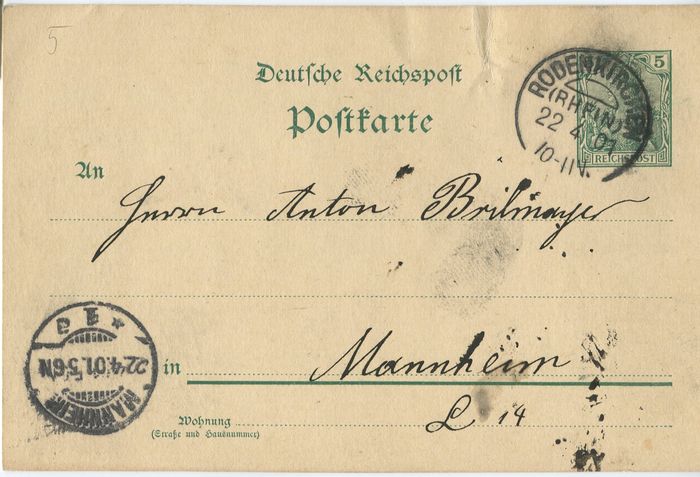 5
Deutsche Reichspost
Postkarte
5
REICHSPOST
RODENKIRCHEN
(RHEIN)
22 4 01
10-11V.
An
Herrn Anton Brilmayer
in Mannheim
L 14
Wohnung
(Straße und Hausnummer)
MANNHEIM
22.4.01.5-6N
* 1 a